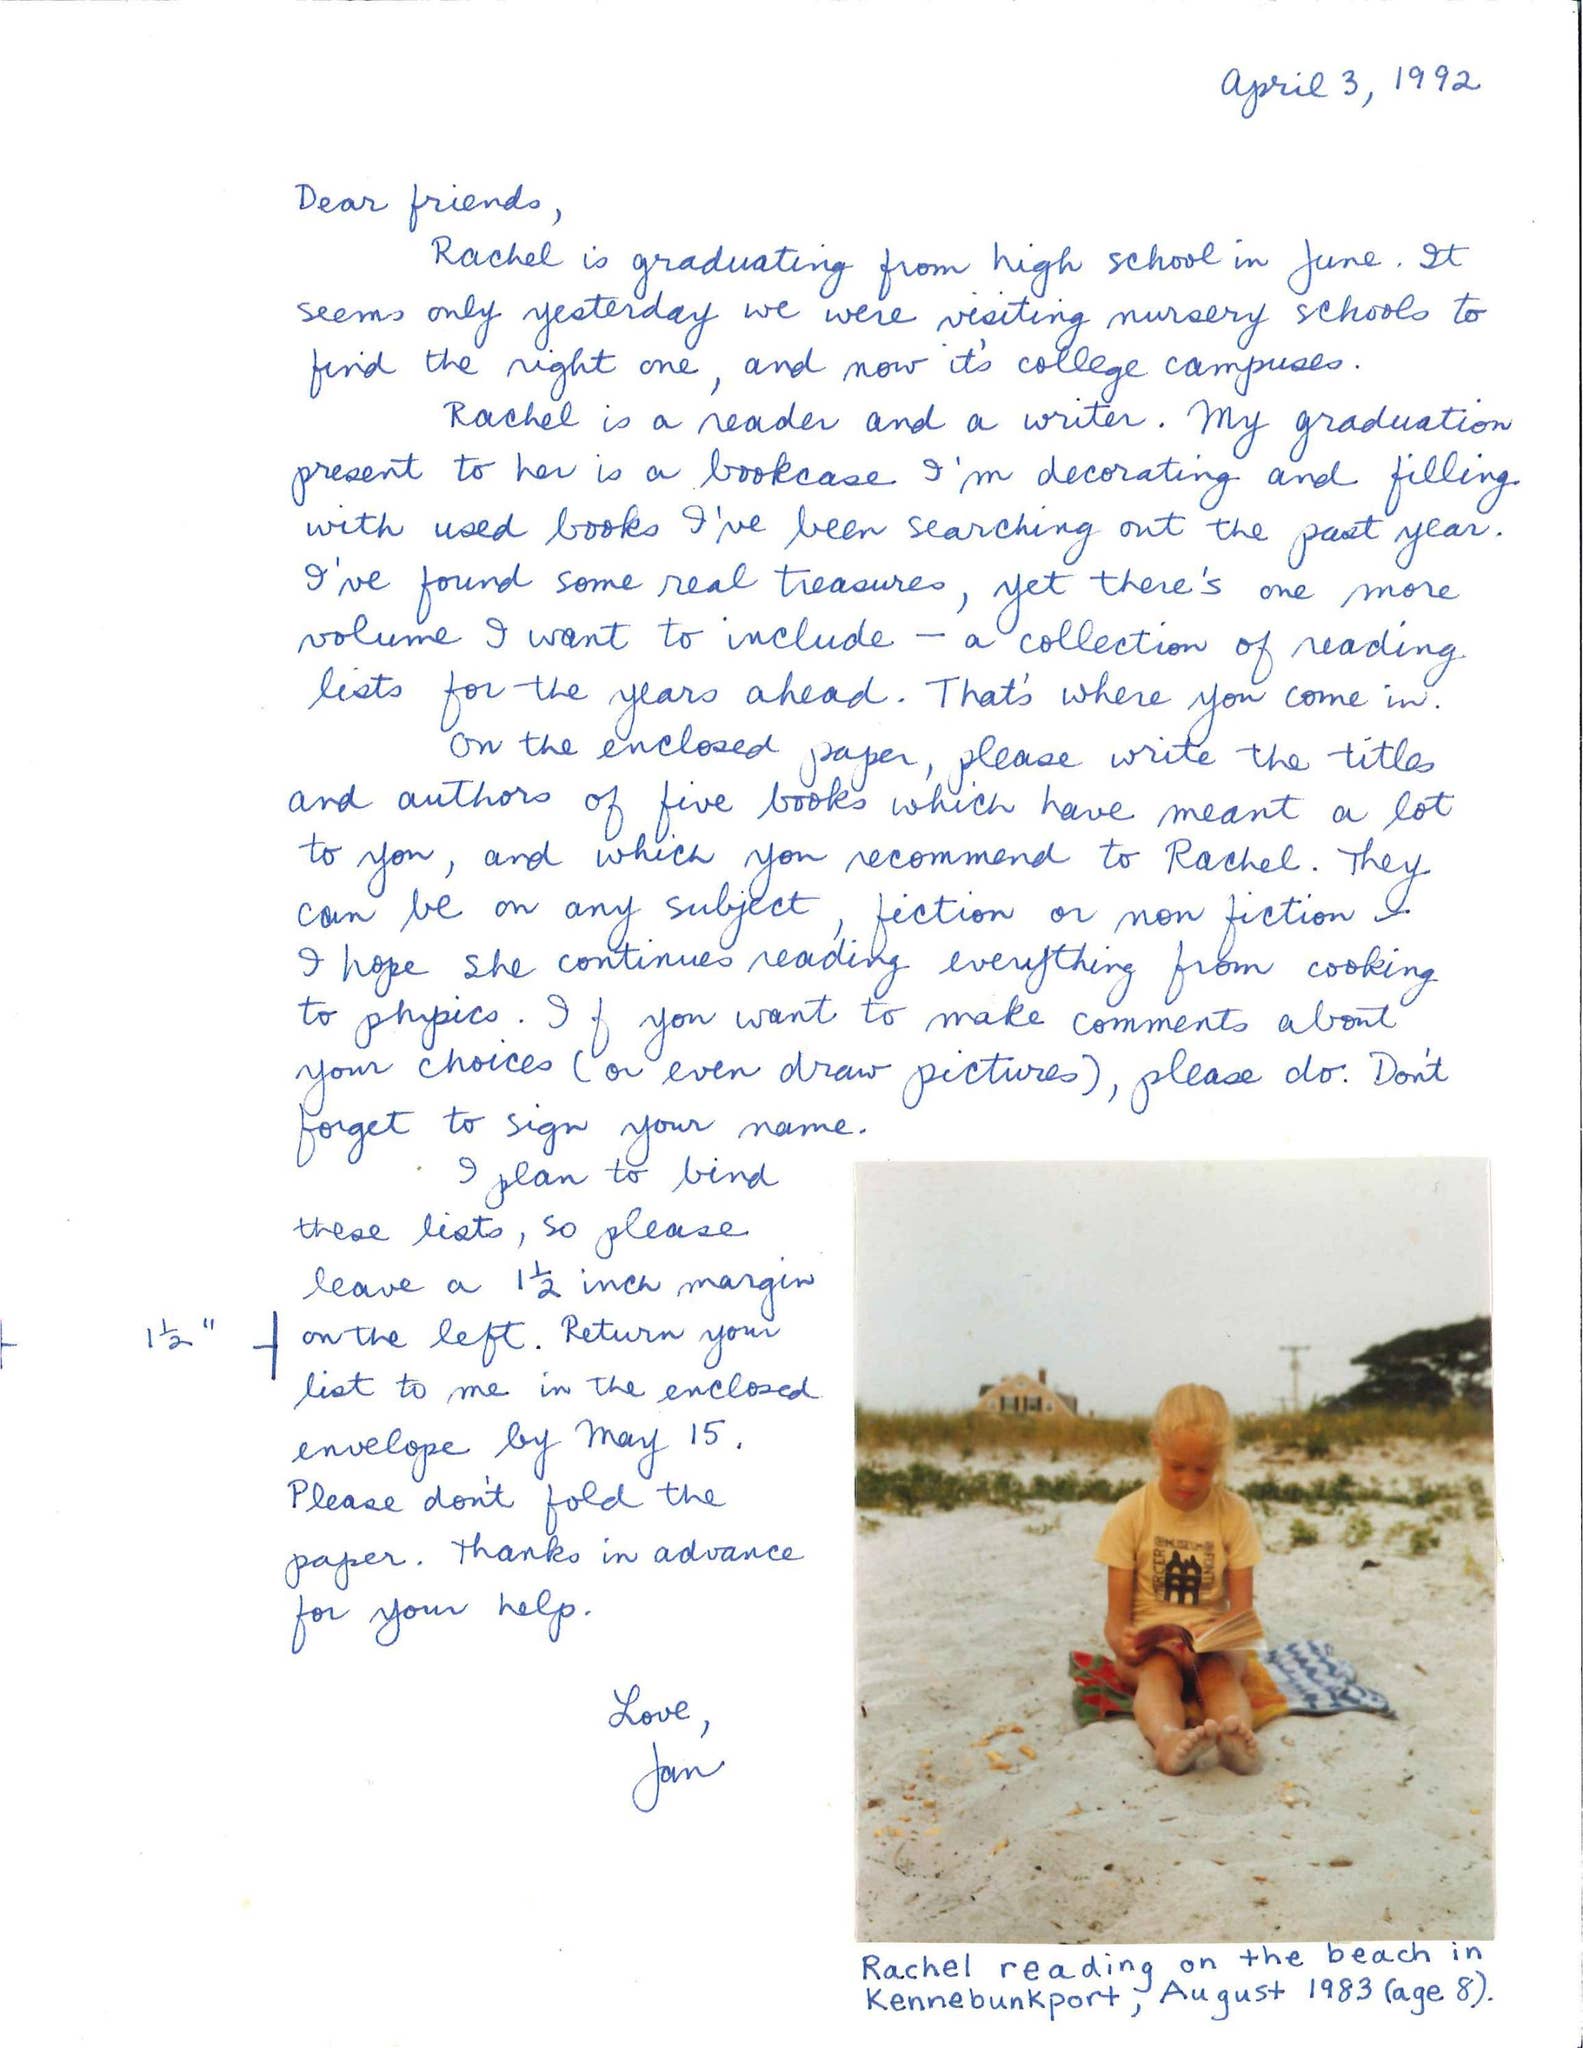 April 3, 1992
Dear friends,
Rachel is graduating from high school in June. It
seems only yesterday we were visiting nursery schools to
find the right one, and now it's college campuses.
Rachel is a reader and a writer. My graduation
present to her is a bookcase I'm decorating and filling
with used books I've been searching out the past year.
I've found some real treasures, yet there's one more
volume I want to include — a collection of reading
lists for the years ahead. That's where you come in.
On the enclosed paper, please write the titles
and authors of five books which have meant a lot
to you, and which you recommend to Rachel. They
can be on any subject, fiction or non fiction —
I hope she continues reading everything from cooking
to physics. If you want to make comments about
your choices (or even draw pictures), please do. Don't
forget to sign your name.
I plan to bind
these lists, so please
leave a 1½ inch margin
1½" on the left. Return your
list to me in the enclosed
envelope by May 15.
Please don't fold the
paper. Thanks in advance
for your help.
Love,
Jan
MUSEUM
Rachel reading on the beach in
Kennebunkport, August 1983 (age 8).